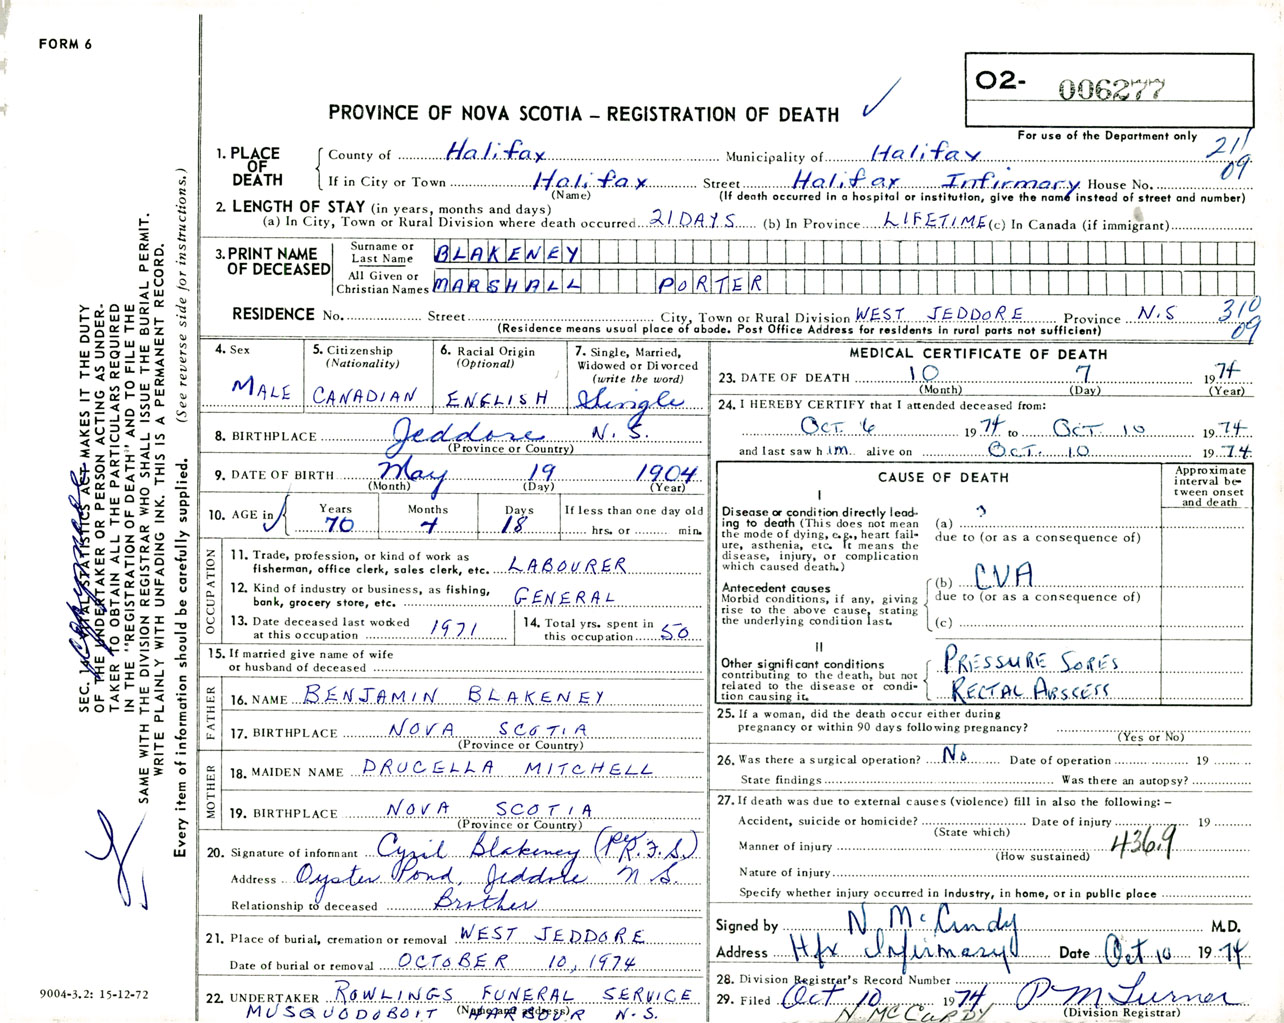 FORM 6
O2- 006277
PROVINCE OF NOVA SCOTIA – REGISTRATION OF DEATH ✓
For use of the Department only
211
09
1. PLACE OF DEATH
County of Halifax Municipality of Halifax
If in City or Town Halifax Street Halifax Infirmary House No.
(Name) (If death occurred in a hospital or institution, give the name instead of street and number)
2. LENGTH OF STAY (in years, months and days)
(a) In City, Town or Rural Division where death occurred 21 DAYS (b) In Province LIFETIME (c) In Canada (if immigrant)
3. PRINT NAME OF DECEASED
Surname or Last Name BLAKENEY
All Given or Christian Names MARSHALL PORTER
RESIDENCE No. Street City, Town or Rural Division WEST JEDDORE Province N.S
(Residence means usual place of abode. Post Office Address for residents in rural parts not sufficient)
310
09
4. Sex
MALE
5. Citizenship
(Nationality)
CANADIAN
6. Racial Origin
(Optional)
ENGLISH
7. Single, Married,
Widowed or Divorced
(write the word)
Single
8. BIRTHPLACE Jeddore N.S.
(Province or Country)
9. DATE OF BIRTH May 19 1904
(Month) (Day) (Year)
10. AGE in
Years Months Days If less than one day old
70 4 18 hrs. or min.
OCCUPATION
11. Trade, profession, or kind of work as
fisherman, office clerk, sales clerk, etc. LABOURER
12. Kind of industry or business, as fishing,
bank, grocery store, etc. GENERAL
13. Date deceased last worked
at this occupation 1971
14. Total yrs. spent in
this occupation 50
15. If married give name of wife
or husband of deceased
FATHER
16. NAME BENJAMIN BLAKENEY
17. BIRTHPLACE NOVA SCOTIA
(Province or Country)
MOTHER
18. MAIDEN NAME DRUCELLA MITCHELL
19. BIRTHPLACE NOVA SCOTIA
(Province or Country)
20. Signature of informant Cyril Blakeney (per R.F.S.)
Address Oyster Pond, Jeddore N.S.
Relationship to deceased Brother
21. Place of burial, cremation or removal WEST JEDDORE
Date of burial or removal OCTOBER 10, 1974
22. UNDERTAKER ROWLINGS FUNERAL SERVICE
(Name and address)
MUSQUODOBOIT HARBOUR N.S.
MEDICAL CERTIFICATE OF DEATH
23. DATE OF DEATH 10 7 1974
(Month) (Day) (Year)
24. I HEREBY CERTIFY that I attended deceased from:
Oct 6 1974 to Oct. 10 1974
and last saw him alive on Oct. 10 1974
CAUSE OF DEATH
Approximate
interval be-
tween onset
and death
I
Disease or condition directly lead-
ing to death (This does not mean
the mode of dying, e.g., heart fail-
ure, asthenia, etc. It means the
disease, injury, or complication
which caused death.)
(a) ?
due to (or as a consequence of)
Antecedent causes
Morbid conditions, if any, giving
rise to the above cause, stating
the underlying condition last.
(b) CVA
due to (or as a consequence of)
(c)
II
Other significant conditions
contributing to the death, but not
related to the disease or condi-
tion causing it.
PRESSURE SORES
RECTAL ABSCESS
25. If a woman, did the death occur either during
pregnancy or within 90 days following pregnancy?
(Yes or No)
26. Was there a surgical operation? No Date of operation 19
State findings Was there an autopsy?
27. If death was due to external causes (violence) fill in also the following: –
Accident, suicide or homicide? Date of injury 19
(State which)
Manner of injury 436.9
(How sustained)
Nature of injury
Specify whether injury occurred in industry, in home, or in public place
Signed by N McCurdy M.D.
Address Hfx Infirmary Date Oct 10 1974
28. Division Registrar's Record Number
29. Filed Oct 10 1974 P M Turner
(Division Registrar)
N. McCURDY
SEC. VITAL STATISTICS ACT MAKES IT THE DUTY
OF THE UNDERTAKER OR PERSON ACTING AS UNDER-
TAKER TO OBTAIN ALL THE PARTICULARS REQUIRED
IN THE "REGISTRATION OF DEATH" AND TO FILE THE
SAME WITH THE DIVISION REGISTRAR WHO SHALL ISSUE THE BURIAL PERMIT.
WRITE PLAINLY WITH UNFADING INK. THIS IS A PERMANENT RECORD.
Every item of information should be carefully supplied. (See reverse side for instructions.)
9004-3.2: 15-12-72